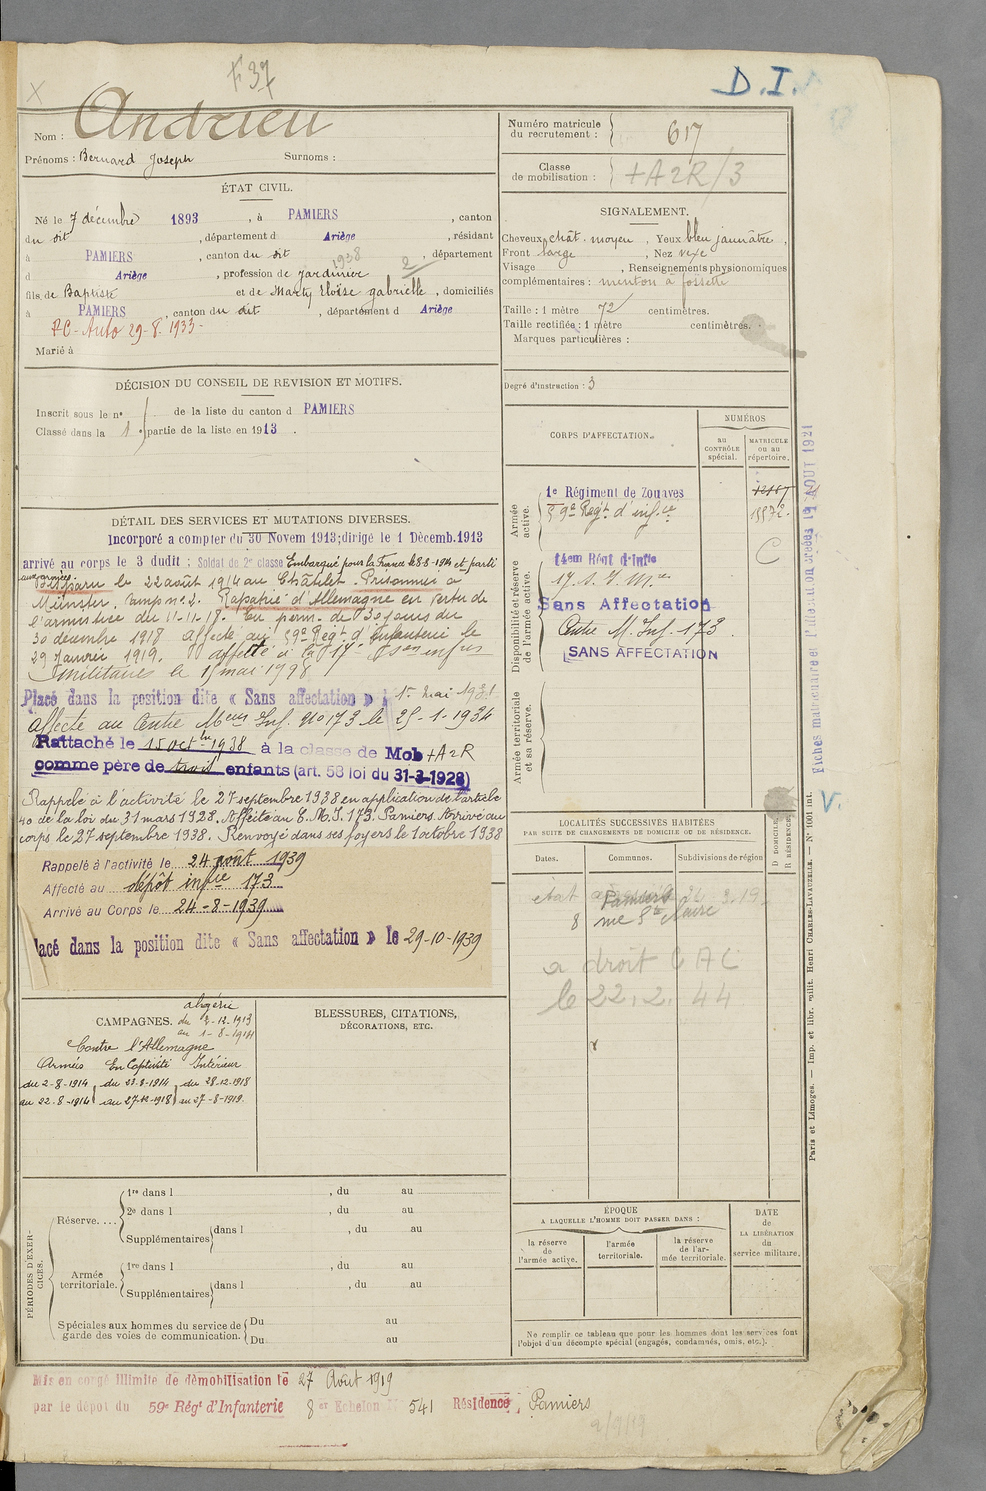 F 37
D. I.
X
Nom : Andrieu
Prénoms : Bernard Joseph Surnoms :
Numéro matricule du recrutement : 617
Classe de mobilisation : +A2R/3
ÉTAT CIVIL.
Né le 7 décembre 1893, à PAMIERS, canton
du dit, département d Ariège, résidant
à PAMIERS, canton du dit, département
1938 2
d Ariège, profession de jardinier
fils de Baptiste et de Marty Eloïse gabrielle, domiciliés
à PAMIERS, canton du dit, département d Ariège
RC-Auto 29-8-1933-
Marié à
SIGNALEMENT.
Cheveux chât. moyen, Yeux bleu jaunâtre,
Front large, Nez vexe
Visage , Renseignements physionomiques
complémentaires : menton à fossette
Taille : 1 mètre 72 centimètres.
Taille rectifiée : 1 mètre centimètres.
Marques particulières :
Degré d'instruction : 3
DÉCISION DU CONSEIL DE REVISION ET MOTIFS.
Inscrit sous le n° de la liste du canton d PAMIERS
Classé dans la 1e partie de la liste en 1913.
DÉTAIL DES SERVICES ET MUTATIONS DIVERSES.
Incorporé a compter du 30 Novem 1913; dirigé le 1 Décemb. 1913
arrivé au corps le 3 dudit : Soldat de 2e classe Embarqué pour la France le 8-8-1914 et parti
aux armées
Disparu le 22 août 1914 au Châtelet. Prisonnier à
Münster, camp no 2. Rapatrié d'Allemagne en vertu de
l'armistice du 11-11-18. En perm. de 30 jours du
30 décembre 1918. Affecté au 59e Régt d'Infanterie le
29 Janvier 1919. affecté à la 17e Son infrs
militaires le 1er mai 1928
Placé dans la position dite « Sans affectation » 1er mai 1931
affecté au Centre Meur Inf. No 173 le 25-1-1934
Rattaché le 15 octbre 1938 à la classe de Mob +A2R
comme père de trois enfants (art. 58 loi du 31-3-1928)
Rappelé à l'activité le 27 septembre 1938 en application de l'article
40 de la loi du 31 mars 1928. Affecté au C. M. I. 173. Pamiers. Arrivé au
corps le 27 septembre 1938. Renvoyé dans ses foyers le 1 octobre 1938
Rappelé à l'activité le 24 août 1939
Affecté au dépôt infie 173
Arrivé au Corps le 24-8-1939
lacé dans la position dite « Sans affectation » le 29-10-1939
CORPS D'AFFECTATION.
NUMÉROS
AU CONTRÔLE spécial.
MATRICULE ou au répertoire.
Armée active.
1e Régiment de Zouaves 12167
59e Régt d'infie
C
Disponibilité et réserve de l'armée active.
14em Régt d'Infie
17. S. I. Mres
Sans Affectation
Centre M. Inf. 173.
SANS AFFECTATION
Armée territoriale et sa réserve.
Fiches matriculaire et l'affectation créées 19 AOUT 1921
V.
LOCALITÉS SUCCESSIVES HABITÉES
PAR SUITE DE CHANGEMENTS DE DOMICILE OU DE RÉSIDENCE.
Dates. Communes. Subdivisions de région
D DOMICILE.
R RÉSIDENCE.
Pamiers
8 rue Ste Claire
a droit CAC
le 22.2.44
CAMPAGNES.
algérie
du 2-12-1913
au 1-8-1914
Contre l'Allemagne
Armées En Captivité Intérieur
du 2-8-1914 du 23-8-1914 du 28-12-1918
au 22-8-1914 au 27-12-1918 au 27-8-1919.
BLESSURES, CITATIONS,
DÉCORATIONS, ETC.
PÉRIODES D'EXERCICES.
Réserve....
1re dans l , du au
2e dans l , du au
Supplémentaires dans l , du au
Armée territoriale.
1re dans l , du au
Supplémentaires dans l , du au
Spéciales aux hommes du service de garde des voies de communication.
Du au
Du au
ÉPOQUE
A LAQUELLE L'HOMME DOIT PASSER DANS :
la réserve de l'armée active.
l'armée territoriale.
la réserve de l'armée territoriale.
DATE de LA LIBÉRATION du service militaire.
Ne remplir ce tableau que pour les hommes dont les services font
l'objet d'un décompte spécial (engagés, condamnés, omis, etc.).
Paris et Limoges. — Imp. et libr. milit. Henri CHARLES-LAVAUZELLE. — N° 1001 int.
Mis en congé illimité de démobilisation le 27 Août 1919
par le dépôt du 59e Régt d'Infanterie 8er Echelon N° 541 Résidence : Pamiers